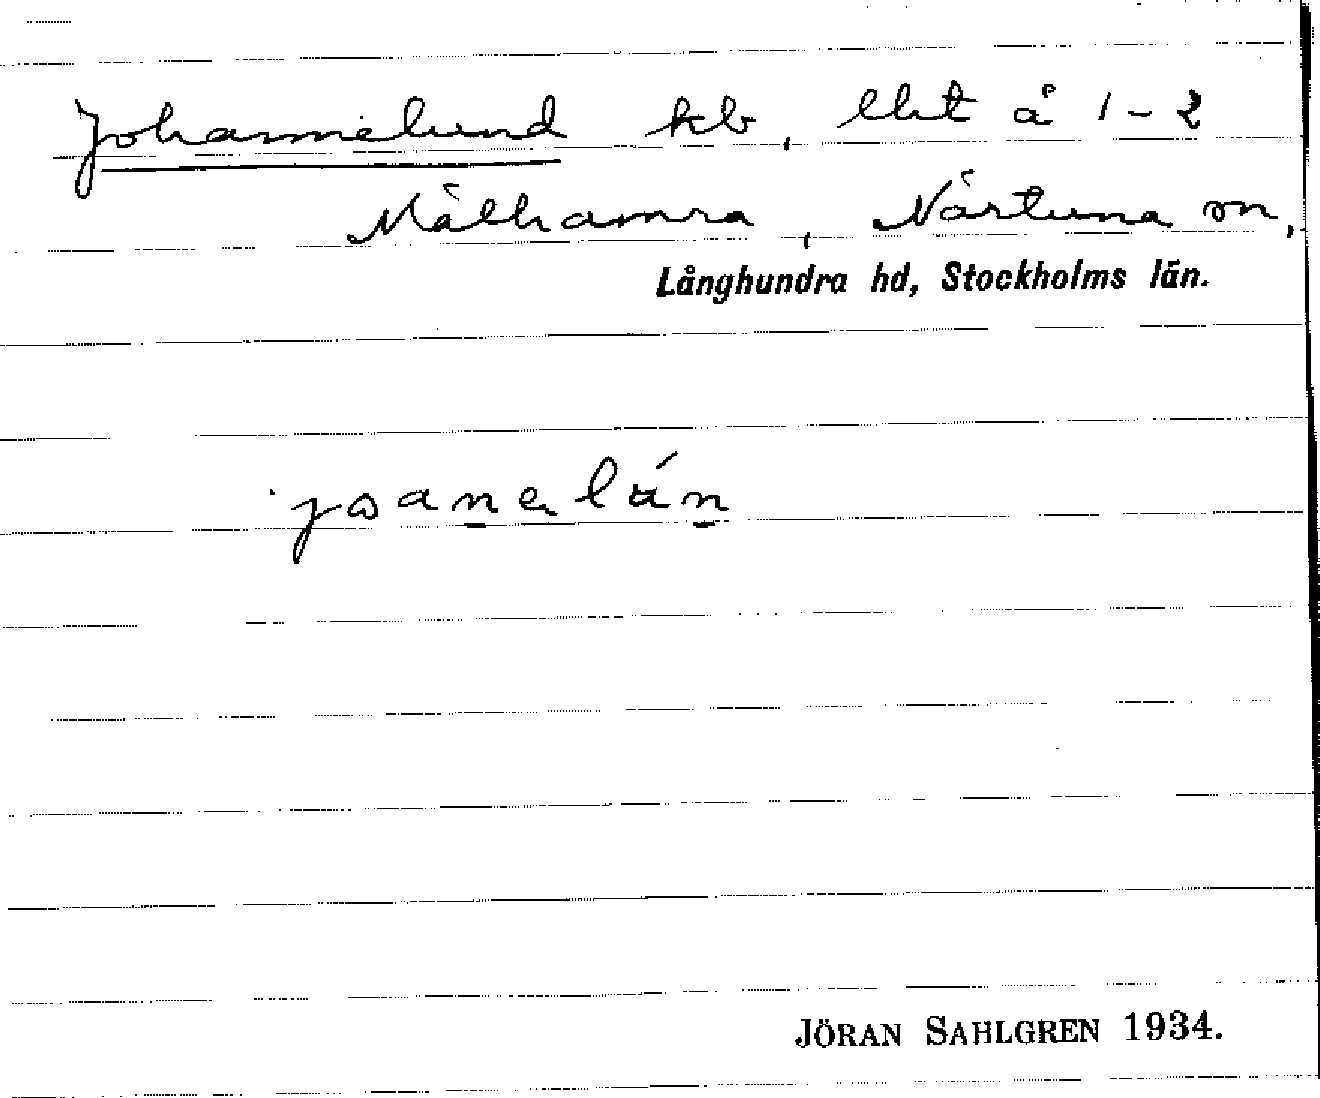 Johannelund kb, lht å 1-2
Målhamra, Närtuna sn,
Långhundra hd, Stockholms län.
JÖRAN SAHLGREN 1934.